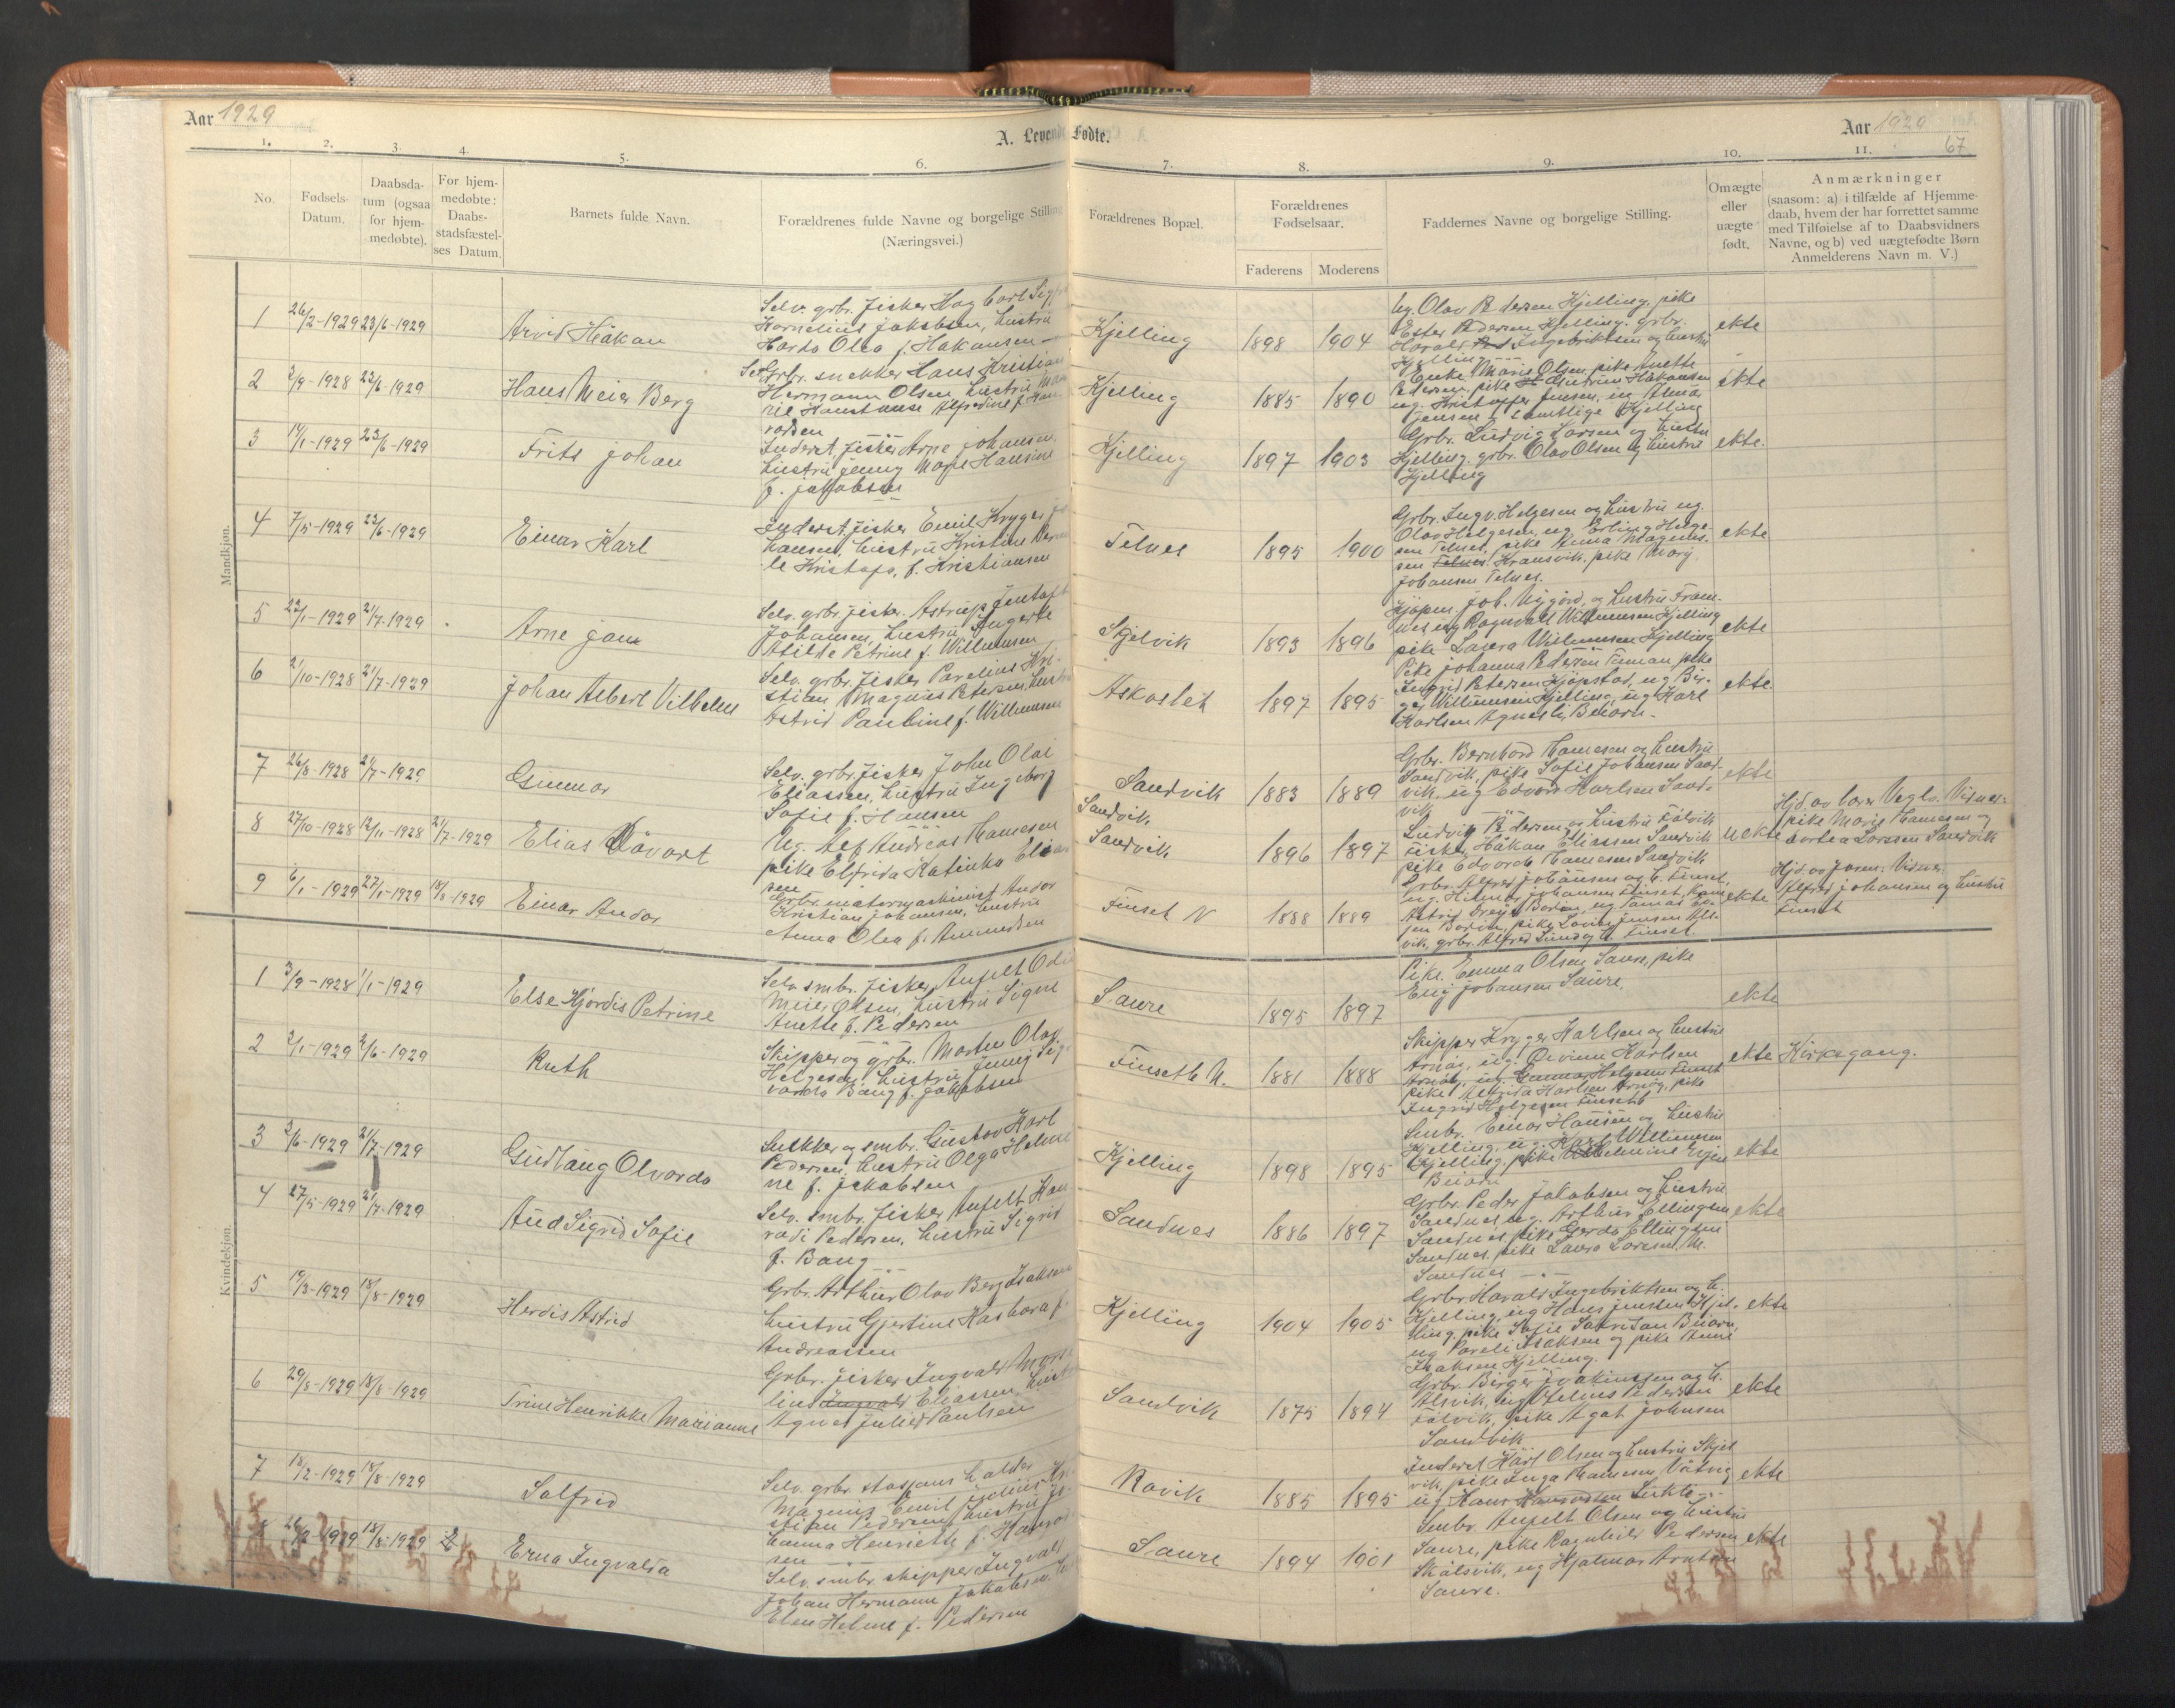 Aar 1929
A. Levende Fødte.
Aar 1929
67
1. 2. 3. 4. 5. 6. 7. 8. 9. 10. 11.
No.
Fødsels-
Datum.
Daabsda-
tum (ogsaa
for hjem-
medøbte).
For hjem-
medøbte:
Daabs-
stadsfæstel-
ses Datum.
Barnets fulde Navn.
Forældrenes fulde Navne og borgelige Stilling
(Næringsvei.)
Forældrenes Bopæl.
Forældrenes
Fødselsaar.
Faderens Moderens
Faddernes Navne og borgelige Stilling.
Omægte
eller
uægte
født.
Anmærkninger
(saasom: a) i tilfælde af Hjemme-
daab, hvem der har forrettet samme
med Tilføielse af to Daabsvidners
Navne, og b) ved uægtefødte Børn
Anmelderens Navn m. V.)
Mandkjøn.
1 26/2-1929 23/6-1929 Arvid Håkan
Selv. grbr. fisker Hag
Kornelius Jakobsen, hustru
Olea f. Håkansen
Kjelling 1898 1904
ug. Olav Pedersen Kjelling, pike
Ester Pedersen Kjelling, grbr.
Harald Ingebriktsen og hustru
Kjelling
ekte
2 2/9-1928 23/6-1929 Hans Meier Berg
grbr. snekker Hans Kristian
Hermann Olsen, hustru
Kjelling 1885 1890
Enke Marie Olsen, pike Anette
Pedersen, pike Håkansen
ug. Kristoffer Jensen, ug.
Jensen, samtlige Kjelling
ekte
3 14/1-1929 23/6-1929 Frits Johan
Inderst, fisker Arne Johansen,
hustru Jenny Hansine
f. Jakobsen
Kjelling 1897 1903
Grbr. Ludvig Larsen og hustru
Kjelling, grbr. Olav Olsen og hustru
Kjelling
ekte.
4 7/5-1929 23/6-1929 Einar Karl
Inderst, fisker Emil Kryger
hansen, hustru Kristine
f. Kristiansen
Telnes 1895 1900
Grbr. Ingv. Helgesen og hustru, ug.
Olav Helgesen, ug. Erling Helge-
sen Telnes, pike Anna Magnus-
sen Telnes Kransvik, pike Mary
Johansen Telnes.
ekte
5 22/1-1929 21/7-1929 Arne Jan
Selv. grbr. fisker Astrup
Johansen, hustru Ingerte
Petrine f. Willumsen
Skjelvik 1893 1896
Kjøpm. Joh. Nygård, og hustru Fram-
nes, ug. Ragnvald Willumsen Kjelling
pike Laura Willumsen Kjelling
ekte
6 2/10-1928 21/7-1929 Johan Albert Vilhelm
Selv. grbr. fisker Parelius Kri-
stian Magnus Petersen, hustru
Astrid Pauline f. Willumsen
Askoslet 1897 1895
Pike Johanna Pedersen, pike
Ingrid Petersen Kjøpstad, ug. Bir-
ger Willumsen Kjelling, ug. Karl
Karlsen Agnesli, Beiarn.
ekte.
7 26/8-1928 21/7-1929 Gunnar
Selv. grbr. fisker John Olai
Eliassen, hustru Ingeborg
Sofie f. Hansen
Sandvik 1883 1889
Grbr. Bernhard Hamesen og hustru
Sandvik, pike Sofie Johansen Sand-
vik, ug. Edvard Karlsen Sand-
vik
ekte
8 27/10-1928 12/11-1928 21/7-1929 Elias Håvart
Ug. Andreas Hamesen
pike Elfrida Katinka Elias
sen
Sandvik
Sandvik 1896 1897
Ludvig Pedersen og hustru Fålvik
fisker Håkan Eliassen Sandvik
pike Edvarda Hamesen Sandvik
uekte
Hjd. av
pike Marie Hamesen og
Larsen Sandvik
9 6/1-1929 27/1-1929 18/8-1929 Einar Andor
Grbr. motormaskinist Andor
Kristian Johansen, hustru
Anna Olea f. Ammundsen
Finset N 1888 1889
Grbr. Alfred Johansen og h. Finset,
ug. Hilmar Johansen Finset,
ekte
Hjd. av Vidner:
Alfred Johansen og hustru
Finset
Kvindekjøn.
1 3/9-1928 1/1-1929 Else Hjördis Petrine
Selv. smbr. fisker Anfelt
Meier Olsen, hustru Signe
Anette f. Pedersen
Saure 1895 1897
Pike Emma Olsen Saure, pike
Johansen Saure.
ekte
2 2/1-1929 2/6-1929 Ruth
Skipper og grbr. Morten Olav
Helgesen, hustru Jenny
Bang f. Jakobsen
Finseth N. 1881 1888
Skipper Kryger Karlsen og hustru
Arnøy, ug. Øivinn Karlsen
Arnøy, ug. Gunnar Helgesen Finset
pike Alfrida Karlsen Arnøy, pike
Ingrid Helgesen Finseth
ekte Kirkegang.
3 2/6-1929 21/7-1929 Gudlaug Olvarda
Snekker og smbr. Gustav Karl
Pedersen, hustru Olga Helmi
ne f. Jakobsen
Kjelling 1898 1895
Smbr. Einar Hansen og hustru
Kjelling, ug. Karl Willumsen
Kjelling, pike Evjen
Beiarn
ekte
4 27/5-1929 21/7-1929 Aud Sigrid Sofie
Selv. smbr. fisker Anfelt Kon
radi Pedersen, hustru Sigrid
f. Bang
Sandnes 1886 1897
Grbr. Peder Jakobsen og hustru
Sandnes, ug. Arthur Ellingsen
Sandnes, pike Gerda Ellingsen
Sandnes, pike Laura Larsen N.
Sandnes
ekte
5 14/3-1929 18/8-1929 Herdis Astrid
Grbr. Arthur Olav Berg Isaksen
hustru Gjertine Kasbara f.
Andreassen
Kjelling 1904 1905
Grbr. Harald Ingebriktsen og h.
Kjelling, ug. Hans Jenssen Kjel-
ling, pike Sofie Beiarn,
ug. Pareli Isaksen og pike
Isaksen Kjelling.
ekte
6 29/5-1929 18/8-1929 Trine Henrikke Marianne
Grbr. fisker Ingvald
Eliassen,
Agnes Julie Paulsen
Sandvik 1875 1894
Grbr. Birger Joakimssen og h.
Alsvik, ug. Pedersen
Fålvik, pike Agat Johnsen
Sandvik
ekte
7 18/2-1929 18/8-1929 Salfrid
Selv. grbr. stasjons holder
Magnus Emil
stian Pedersen, hustru
Hanna Henriette f.
sen
Ravik 1885 1895
Inderst Karl Olsen og hustru Skjel
vik, pike Inga Hamesen
ekte
8 18/8-1929 Erna Ingvalda
Selv. smbr. skipper Ingvald
Johan Hermann Jakobsen,
Helene f. Pedersen
Saure 1894 1901
Smbr. Anfelt Olsen og hustru
Saure, pike Ragnhild Pedersen
Skålsvik, ug. Hjalmar Arntsen
Saure.
ekte